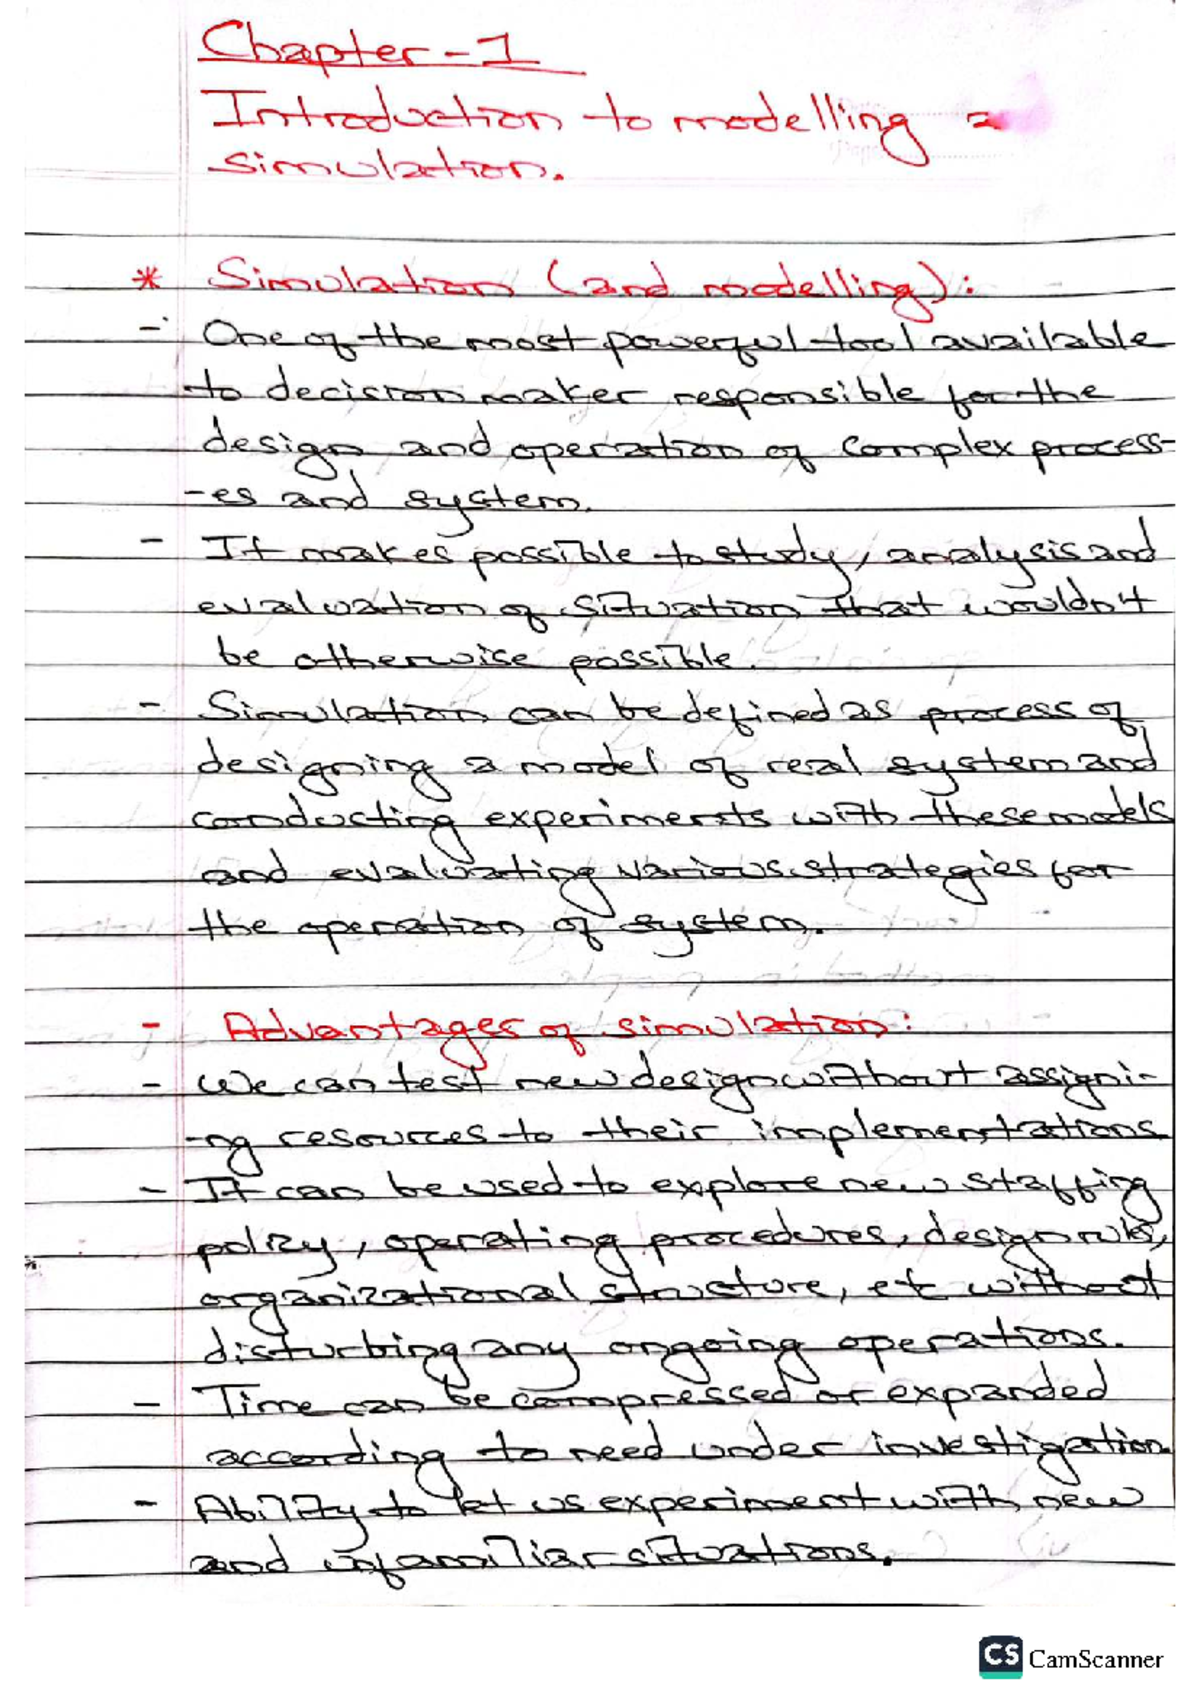 Chapter-1
Introduction to modelling &
simulation.
* Simulation (and modelling):
- One of the most powerful tool available
to decision maker responsible for the
design and operation of complex process-
-es and system.
- It makes possible to study, analysis and
evaluation of situation that wouldn't
be otherwise possible.
- Simulation can be defined as process of
designing a model of real system and
conducting experiments with these models
and evaluating various strategies for
the operation of system.
- Advantages of simulation:
- We can test new design without assigni-
-ng resources to their implementations
- It can be used to explore new staffing
policy, operating procedures, design rules,
organizational structure, etc without
disturbing any ongoing operations.
- Time can be compressed or expanded
according to need under investigation.
- Ability to let us experiment with new
and unfamiliar situations.
CS CamScanner